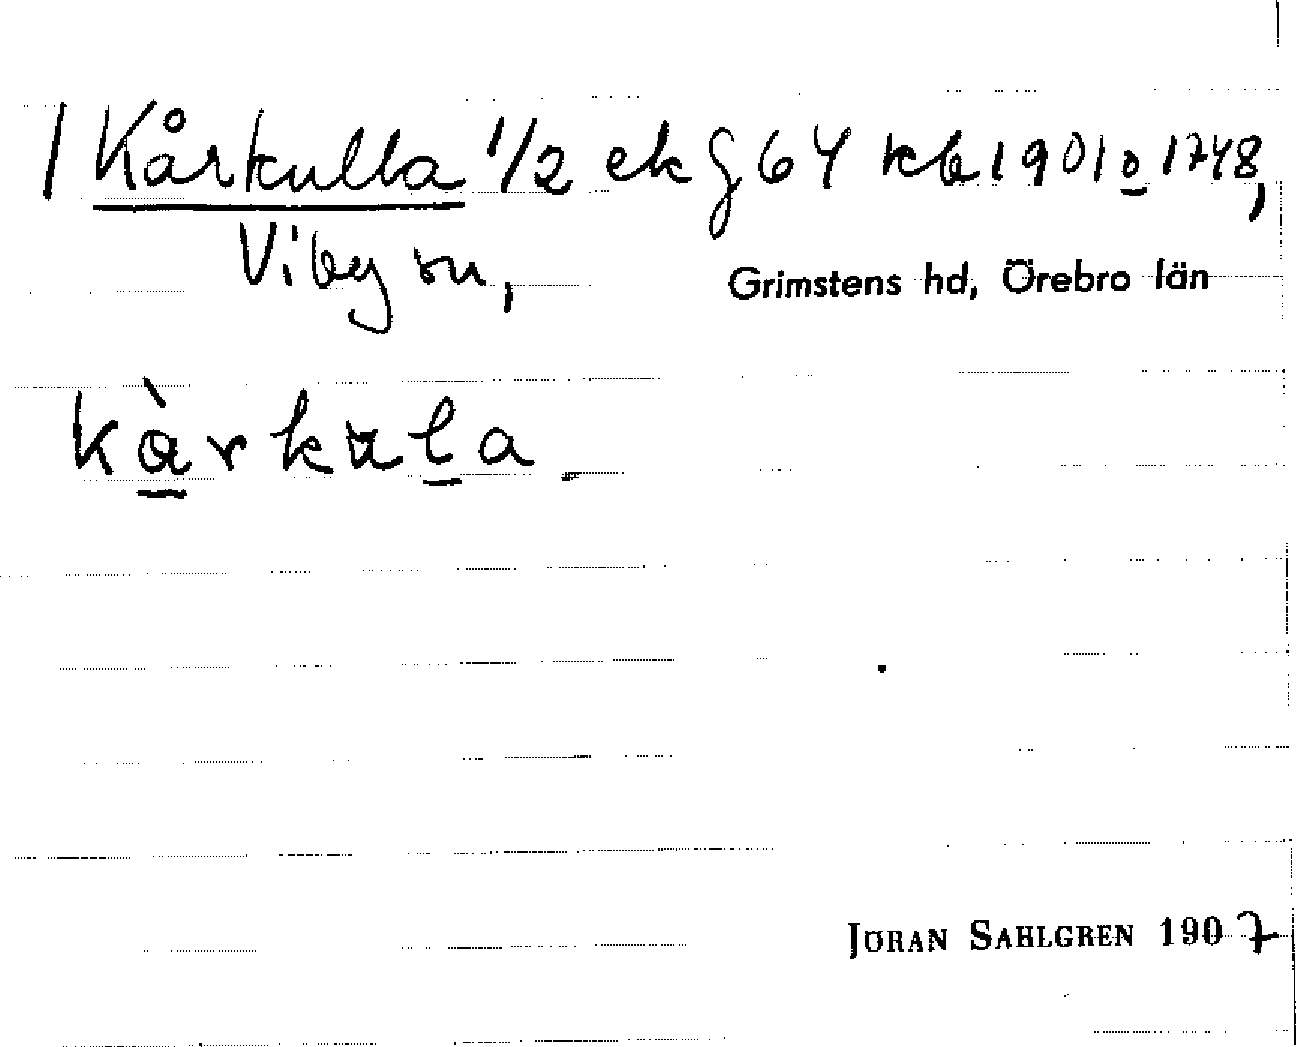 / Kårkulla 1/2 ek G 64 kb 1901 o 1748,
Viby sn,
Grimstens hd, Örebro län
kàrkula
JÖRAN SAHLGREN 1907